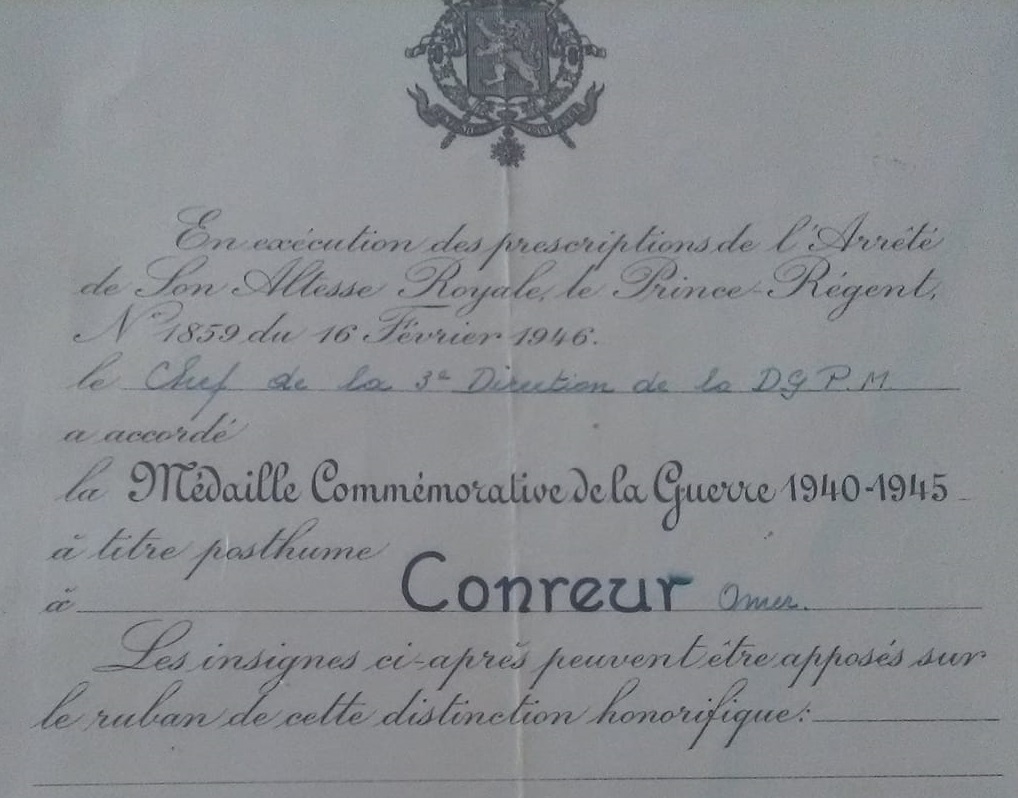 En exécution des prescriptions de l'Arrêté
de Son Altesse Royale, le Prince-Régent,
N° 1859 du 16 Février 1946.
le Chef de la 3e Direction de la D G P. M
a accordé
la Médaille Commémorative de la Guerre 1940-1945
à titre posthume
à Conreur Omer.
Les insignes ci-après peuvent être apposés sur
le ruban de cette distinction honorifique: